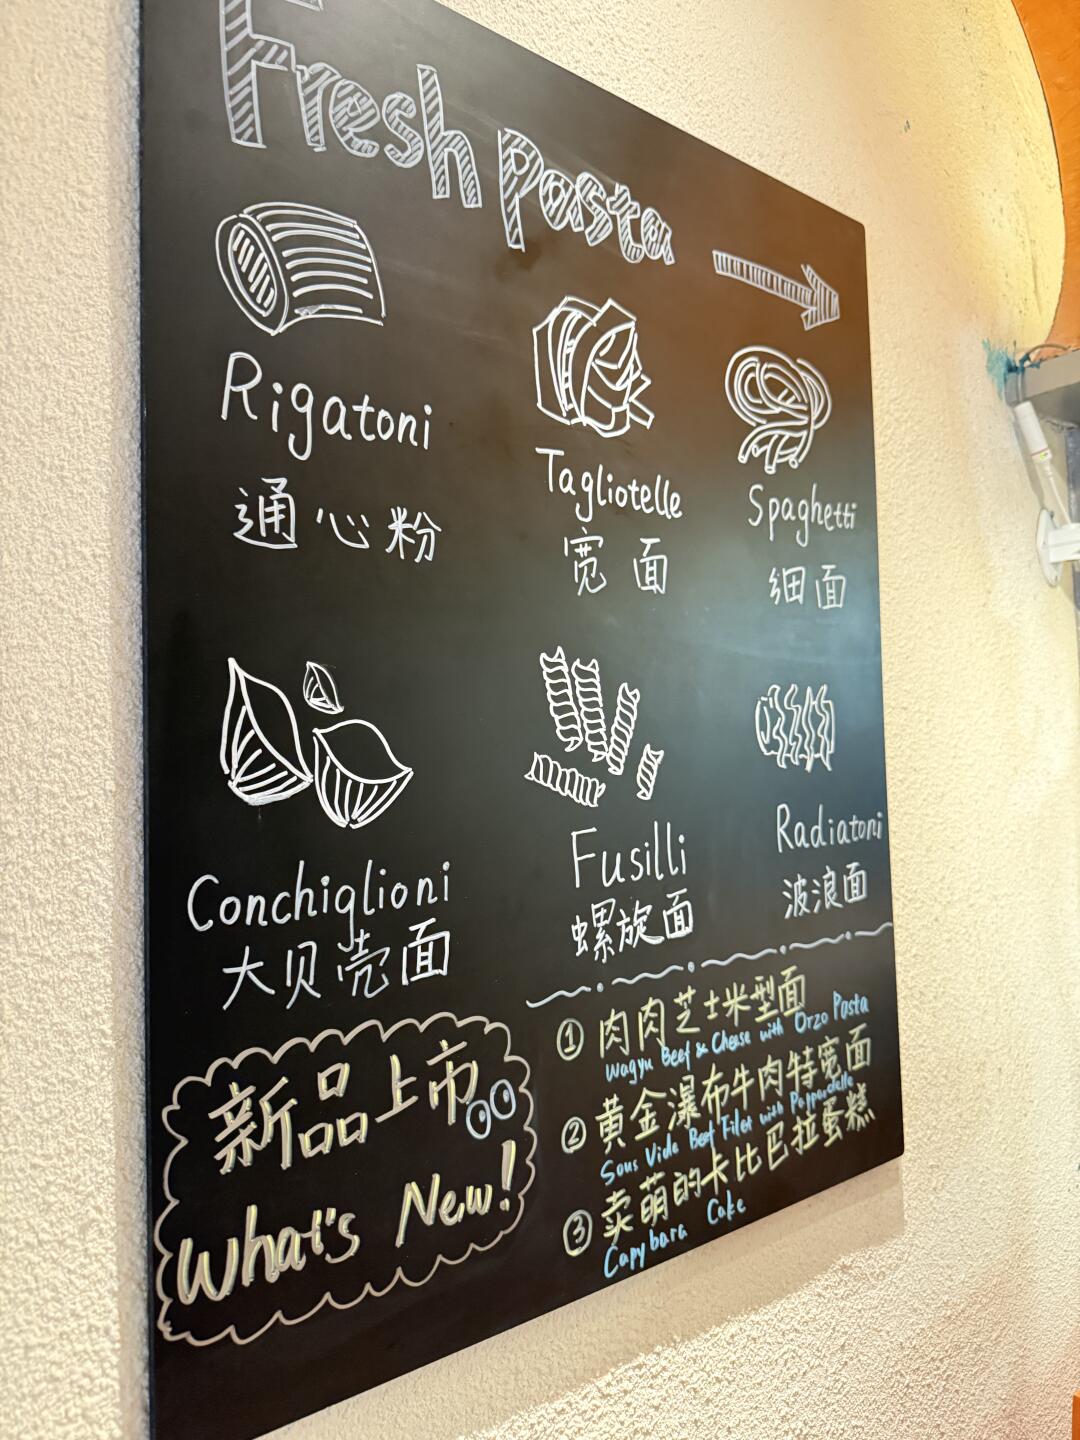 Fresh Pasta
Rigatoni
通心粉
Tagliotelle
宽面
Spaghetti
细面
Conchiglioni
大贝壳面
Fusilli
螺旋面
Radiatoni
波浪面
新品上市
What's New!
① 肉肉芝士米型面
Wagyu Beef & Cheese with Orzo Pasta
② 黄金瀑布牛肉特宽面
Sous Vide Beef Filet with Pappardelle
③ 卖萌的卡比巴拉蛋糕
Capybara Cake